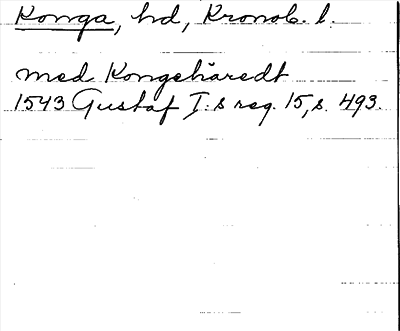 Konga, hd, Kronob. l.
med Kongehäredt
1543 Gustaf I:s reg. 15, s. 493.